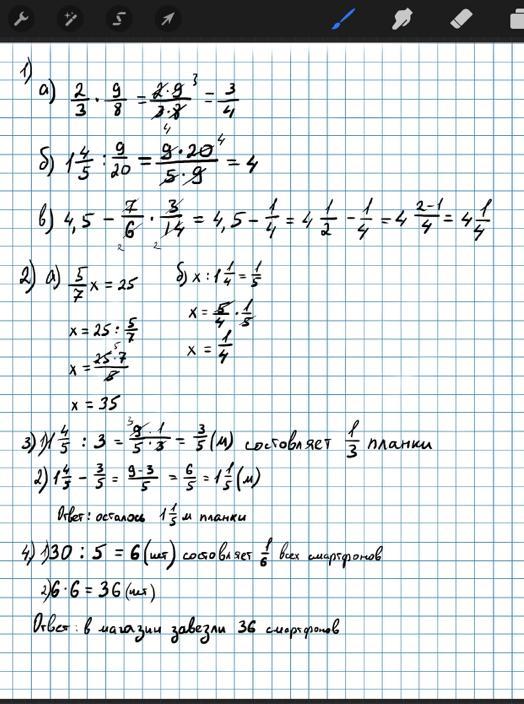 1)
а) 2/3 · 9/8 = 2·9/3·8 = 3/4
б) 1 4/5 : 9/20 = 9·20/5·9 = 4
в) 4,5 − 7/6 · 3/14 = 4,5 − 1/4 = 4 1/2 − 1/4 = 4 2−1/4 = 4 1/4
2) а) 5/7 x = 25
x = 25 : 5/7
x = 25·7/5
x = 35
б) x : 1 1/4 = 1/5
x = 5/4 · 1/5
x = 1/4
3) 1) 1 4/5 : 3 = 9·1/5·3 = 3/5 (м) состовляет 1/3 планки
2) 1 4/5 − 3/5 = 9−3/5 = 6/5 = 1 1/5 (м)
Ответ: осталось 1 1/5 м планки
4) 1) 30 : 5 = 6 (шт) состовляет 1/6 всех смартфонов
2) 6·6 = 36 (шт)
Ответ: в магазин завезли 36 смартфонов